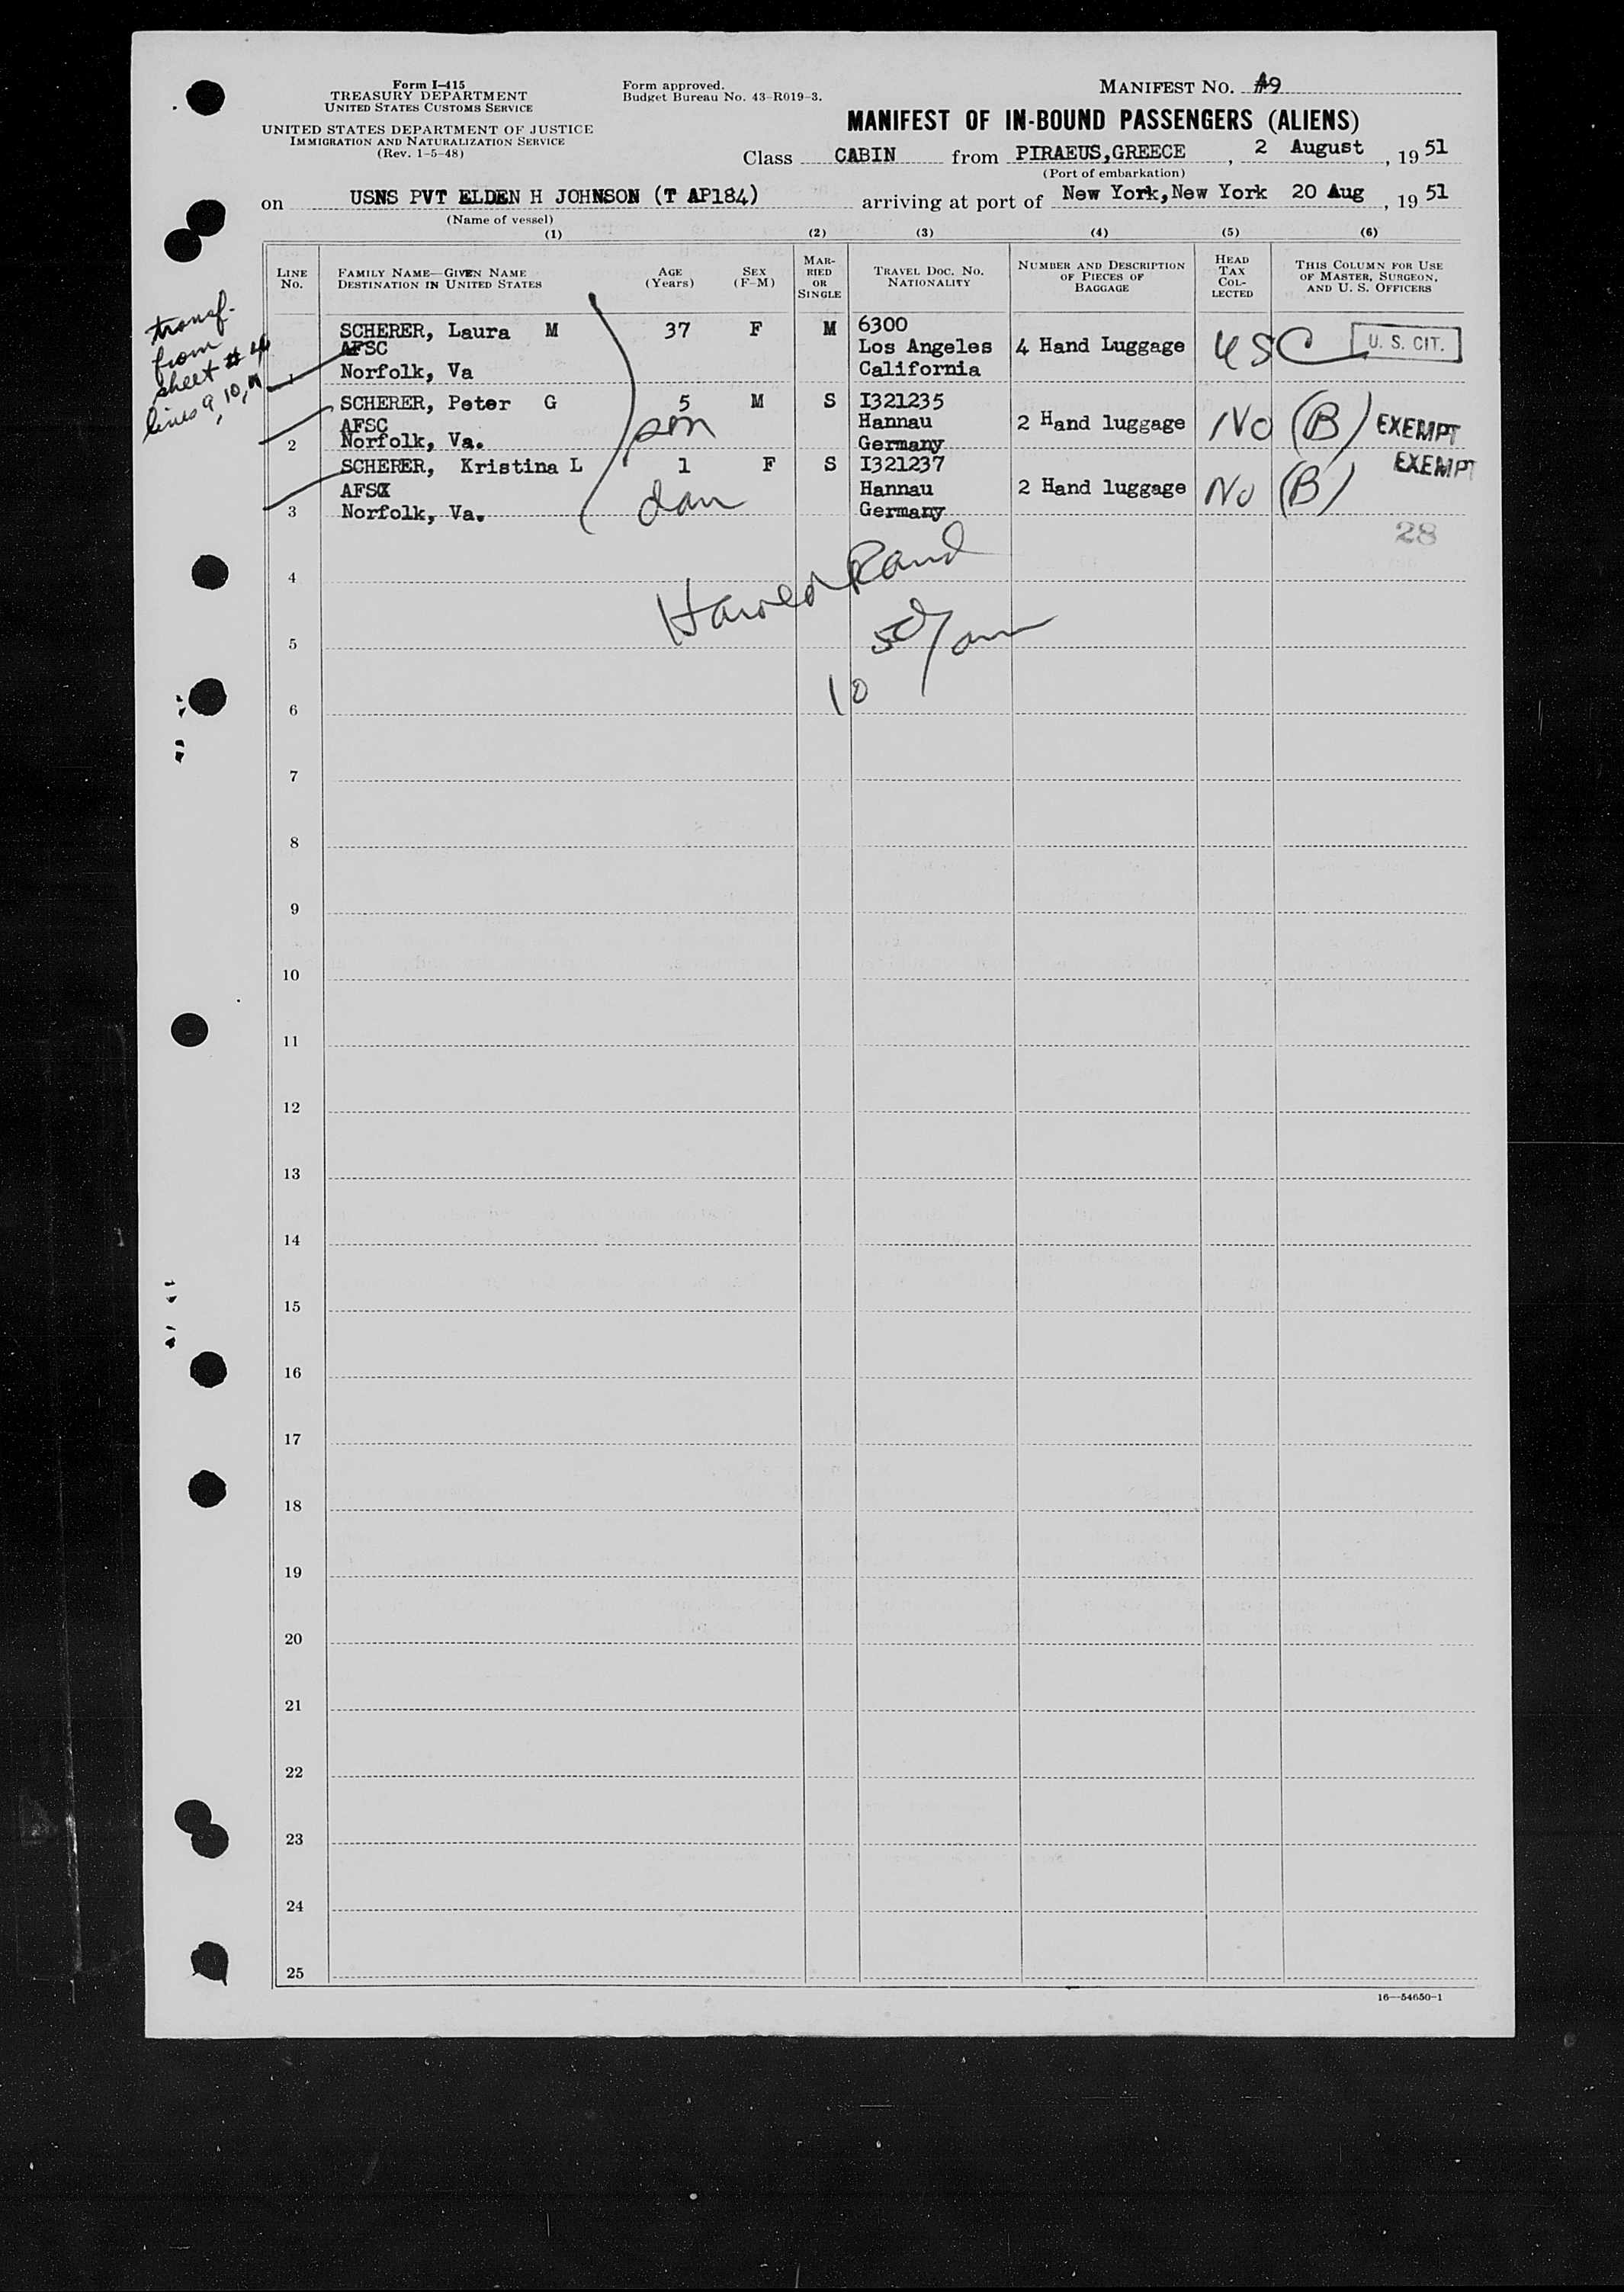 Form I-415
TREASURY DEPARTMENT
UNITED STATES CUSTOMS SERVICE
UNITED STATES DEPARTMENT OF JUSTICE
IMMIGRATION AND NATURALIZATION SERVICE
(Rev. 1-5-48)
Form approved.
Budget Bureau No. 43-R019-3.
MANIFEST NO. A9
MANIFEST OF IN-BOUND PASSENGERS (ALIENS)
Class CABIN from PIRAEUS,GREECE , 2 August , 19 51
(Port of embarkation)
on USNS PVT ELDEN H JOHNSON (T AP184) arriving at port of New York,New York 20 Aug , 19 51
(Name of vessel)
(1) (2) (3) (4) (5) (6)
LINE NO.
FAMILY NAME—GIVEN NAME
DESTINATION IN UNITED STATES
AGE
(Years)
SEX
(F-M)
MAR-
RIED
OR
SINGLE
TRAVEL DOC. NO.
NATIONALITY
NUMBER AND DESCRIPTION
OF PIECES OF
BAGGAGE
HEAD
TAX
COL-
LECTED
THIS COLUMN FOR USE
OF MASTER, SURGEON,
AND U. S. OFFICERS
transf.
from
sheet # 4
lines 9, 10, 11
SCHERER, Laura M 37 F M 6300
AFSC Los Angeles 4 Hand Luggage USC U. S. CIT.
1 Norfolk, Va California
SCHERER, Peter G 5 M S I321235
AFSC son Hannau 2 Hand luggage No (B) EXEMPT
2 Norfolk, Va. Germany
SCHERER, Kristina L 1 F S I321237 EXEMPT
AFSC dau Hannau 2 Hand luggage No (B)
3 Norfolk, Va. Germany
28
Harold Rand
4
50/am
5
10
6
7
8
9
10
11
12
13
14
15
16
17
18
19
20
21
22
23
24
25
16—54650-1